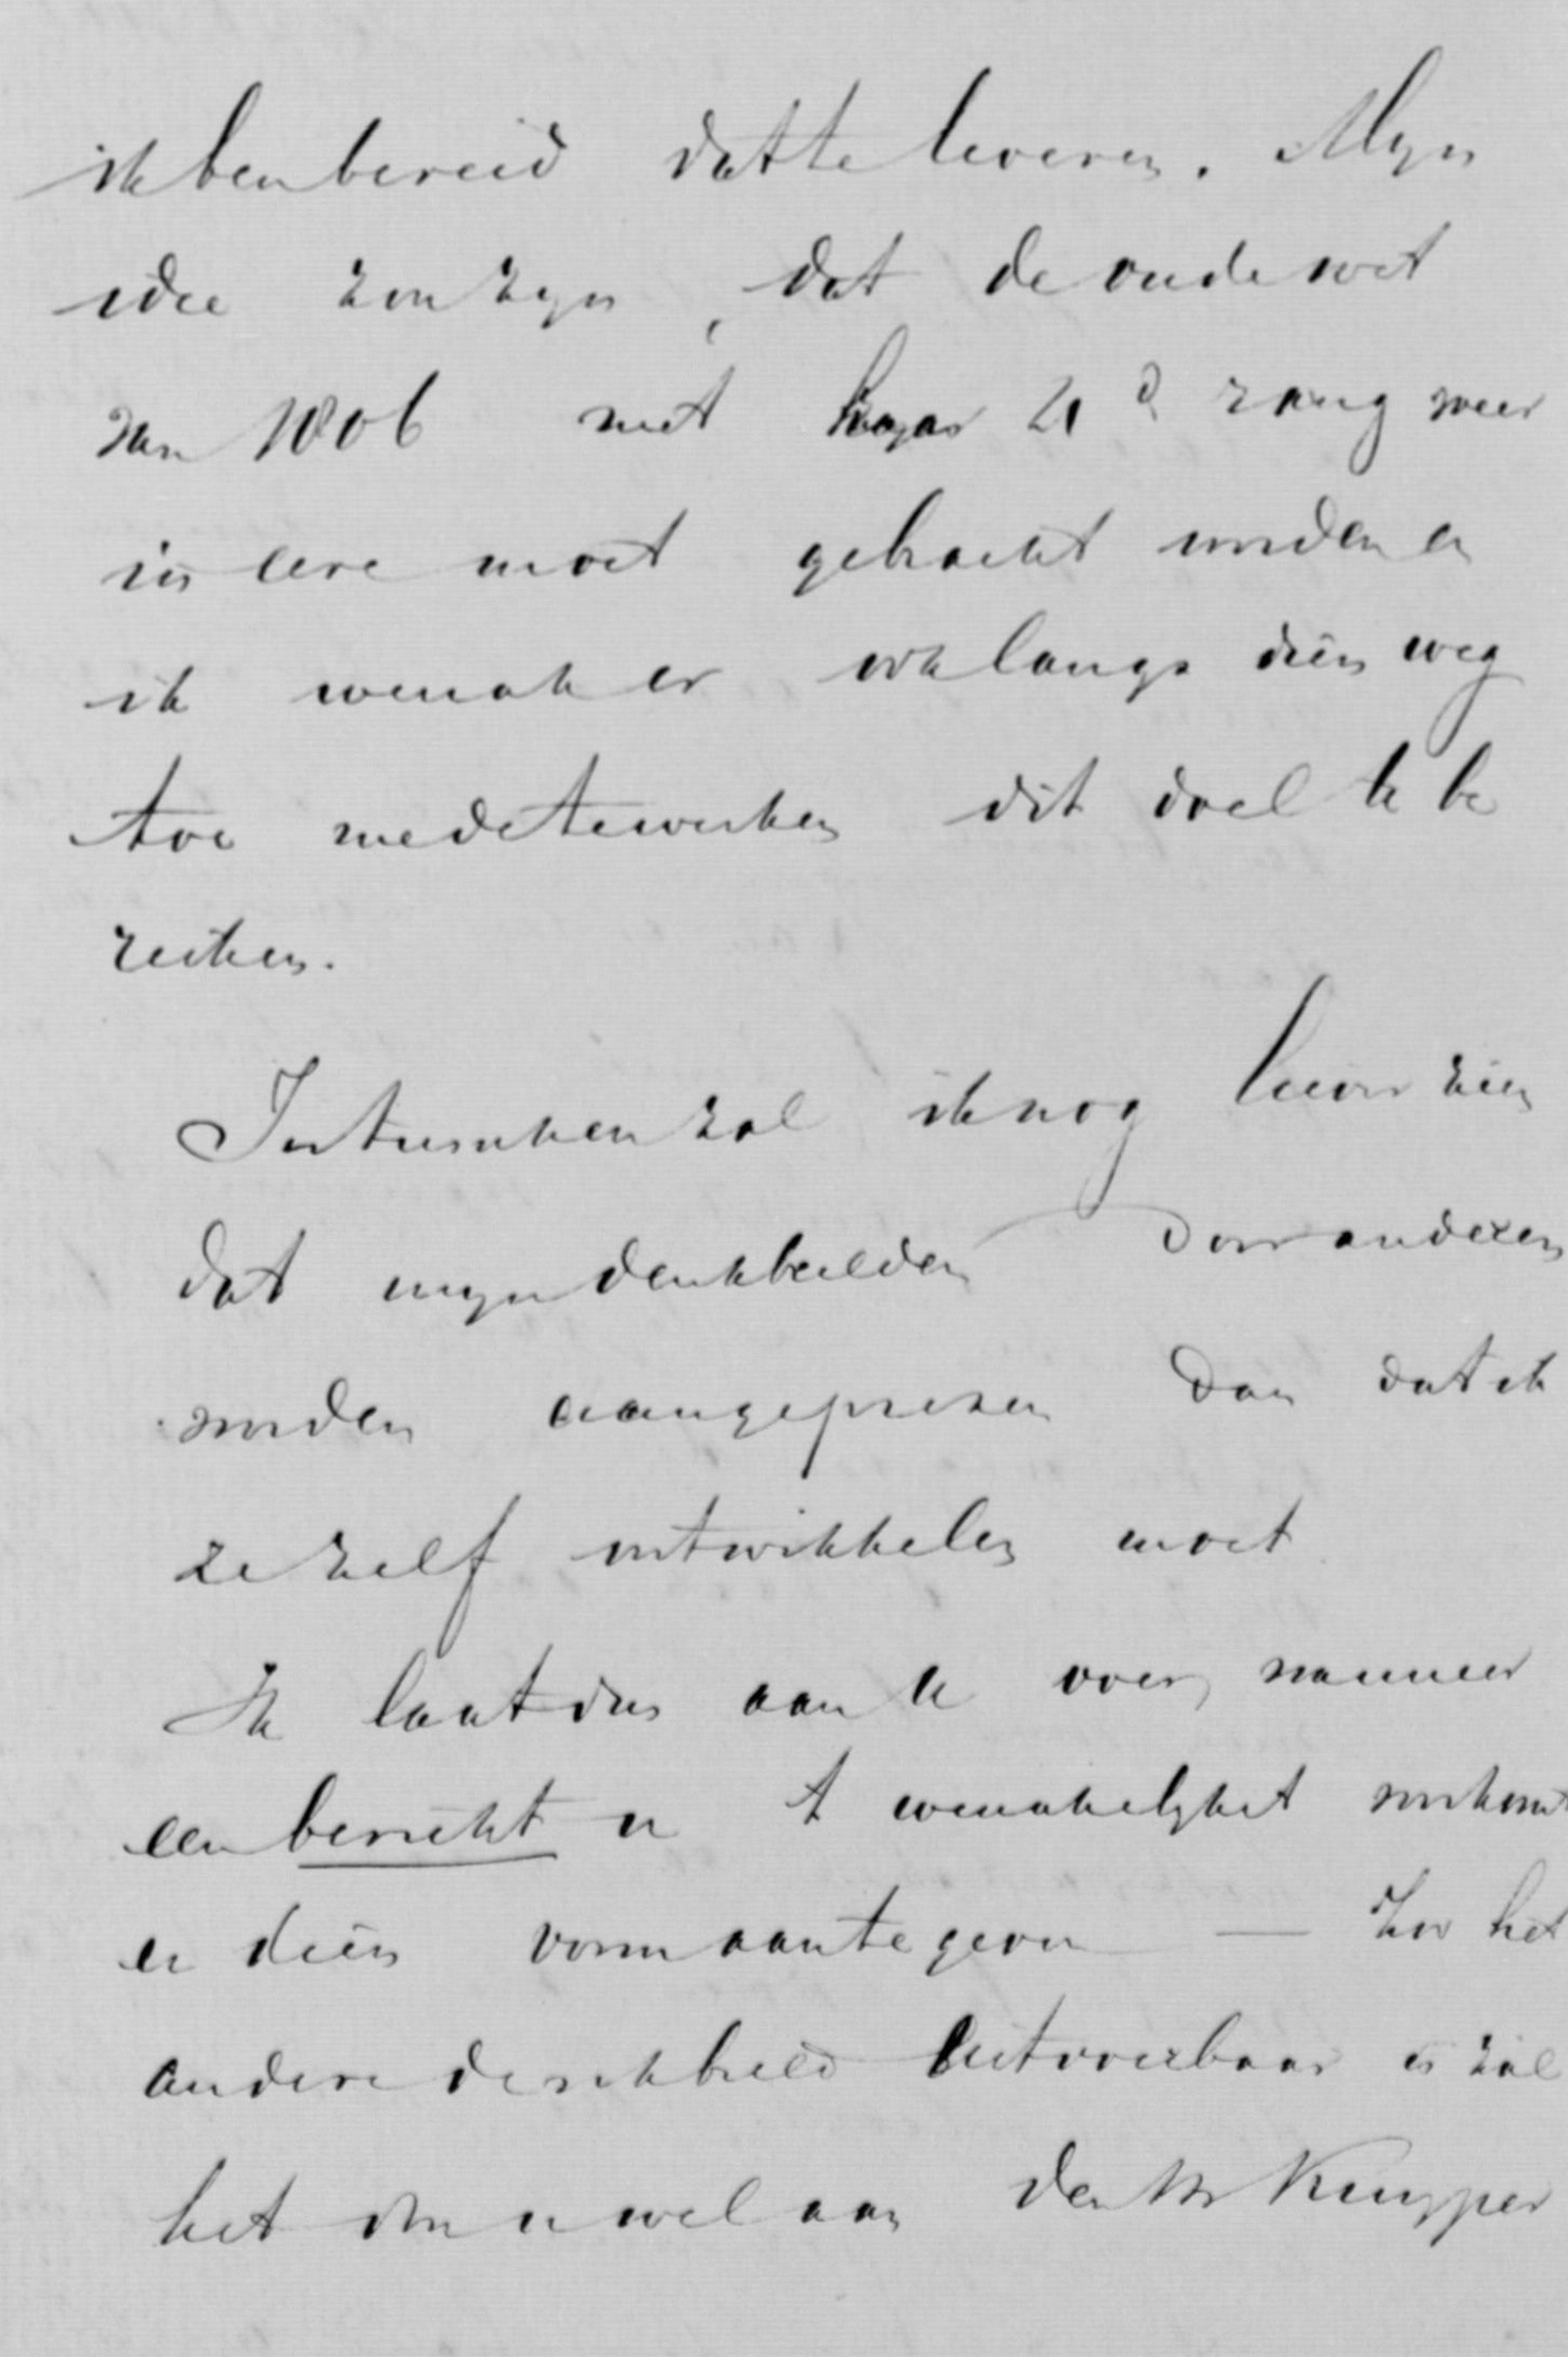 ik ben bereid dat te leveren. Mijn
idee zou zijn, dat de oude wet
van 1806 met haar 2d rang weer
in eere moet gebracht worden en
ik wensch er ook langs dien weg
toe mede te werken dit doel te be
reiken.
Intusschen zal ik nog liever zien
dat mijn denkbeelden door anderen
worden aangeprezen dan dat ik
ze zelf ontwikkelen moet
Ik laat dus aan U over, wanneer
een bericht U 't wenschelykst voorkomt
en dien vorm aan te geven — Zoo het
andere denkbeeld uitvoerbaar is zal
het door u wel aan den Hr Kuyper